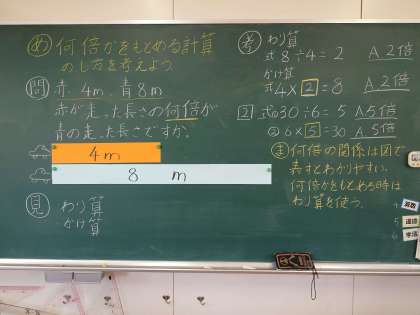 め 何倍かをもとめる計算
のし方を考えよう。
問 赤 4m 青8m
赤が走った長さの何倍が
青の走った長さですか。
4m
8 m
見 わり算
かけ算
考 わり算
式 8÷4=2 A 2倍
かけ算
式 4×2=8 A 2倍
2 式① 30÷6=5 A 5倍
② 6×5=30 A 5倍
ま 何倍の関係は図で
表すとわかりやすい。
何倍かをもとめる時は
わり算を使う。
4 算数
5 道徳
6 学活